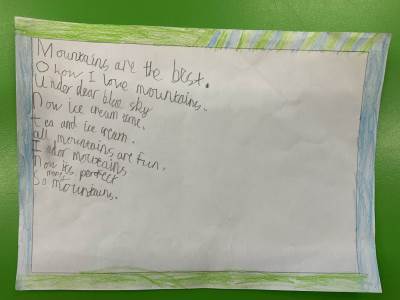 Mountains are the best.
Ohow I love mountains.
Under dear blue sky
Now ice cream time.
tea and ice cream.
all mountains are fun.
I ador mountains
Now its perfect
So mountains.